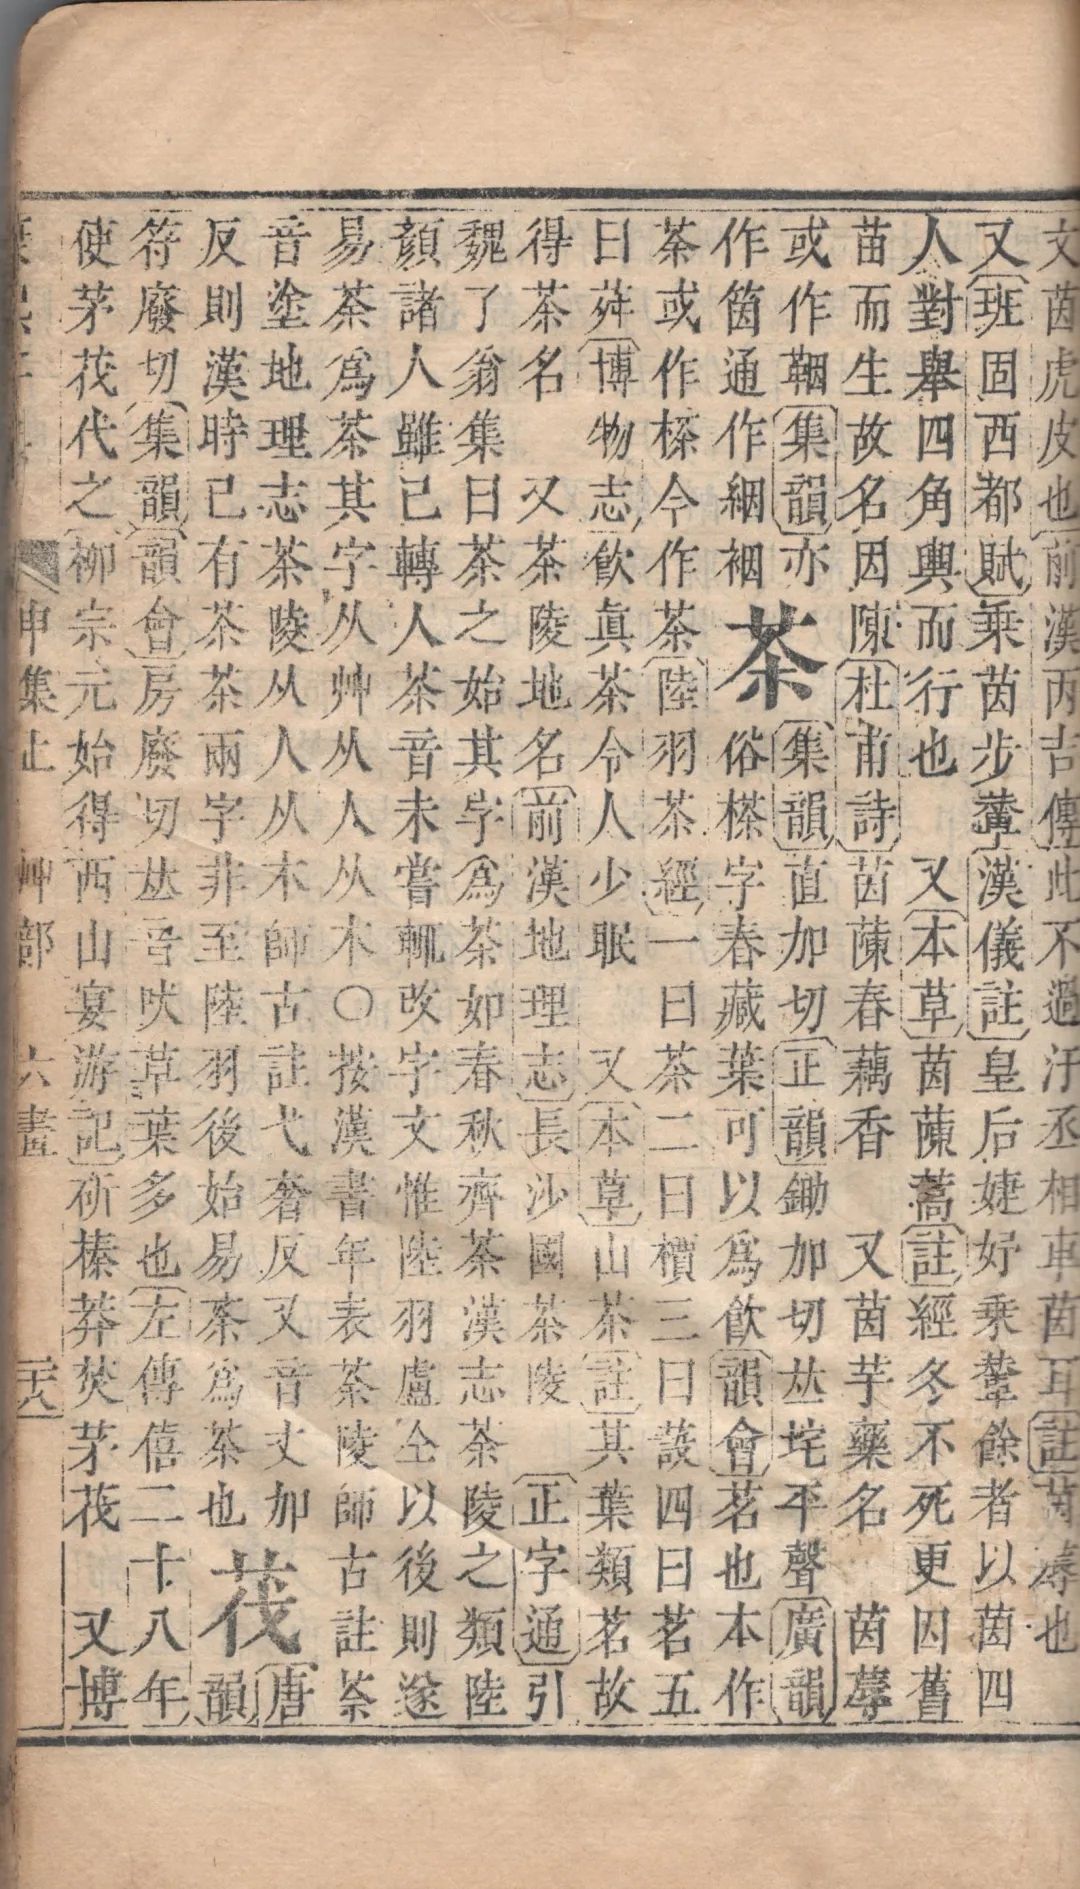 文茵虎皮也前漢丙吉傳此不過汙丞相車茵耳註茵蓐也
又班固西都賦乗茵步輦漢儀註皇后婕妤乗輦餘者以茵四
人對舉四角輿而行也 又本草茵蔯蒿註經冬不死更因舊
苗而生故名因陳杜甫詩茵蔯春藕香 又茵芋藥名 茵蓐
或作鞇集韻亦作茵通作絪裀
茶集韻直加切正韻鋤加切𠀤垞平聲廣韻
俗㮈字春藏葉可以爲飮韻會茗也本作
荼或作㮈今作茶陸羽茶經一曰茶二曰檟三曰蔎四曰茗五
曰荈博物志飮眞茶令人少眠 又本草山茶註其葉類茗故
得茶名 又茶陵地名前漢地理志長沙國茶陵 正字通引
魏了翁集曰茶之始其字爲荼如春秋齊荼漢志荼陵之類陸
顏諸人雖已轉人茶音未嘗輒改字文惟陸羽盧仝以後則遂
易荼爲茶其字从艸从人从木○按漢書年表荼陵師古註荼
音塗地理志茶陵从人从木師古註弋奢反又音丈加
反則漢時已有荼茶兩字非至陸羽後始易荼爲茶也
茷唐韻
符廢切集韻韻會房廢切𠀤音吠草葉多也左傳僖二十八年
使茅茷代之柳宗元始得西山宴游記斫榛莽焚茅茷 又博
申集上 艸部 六畫 二十八